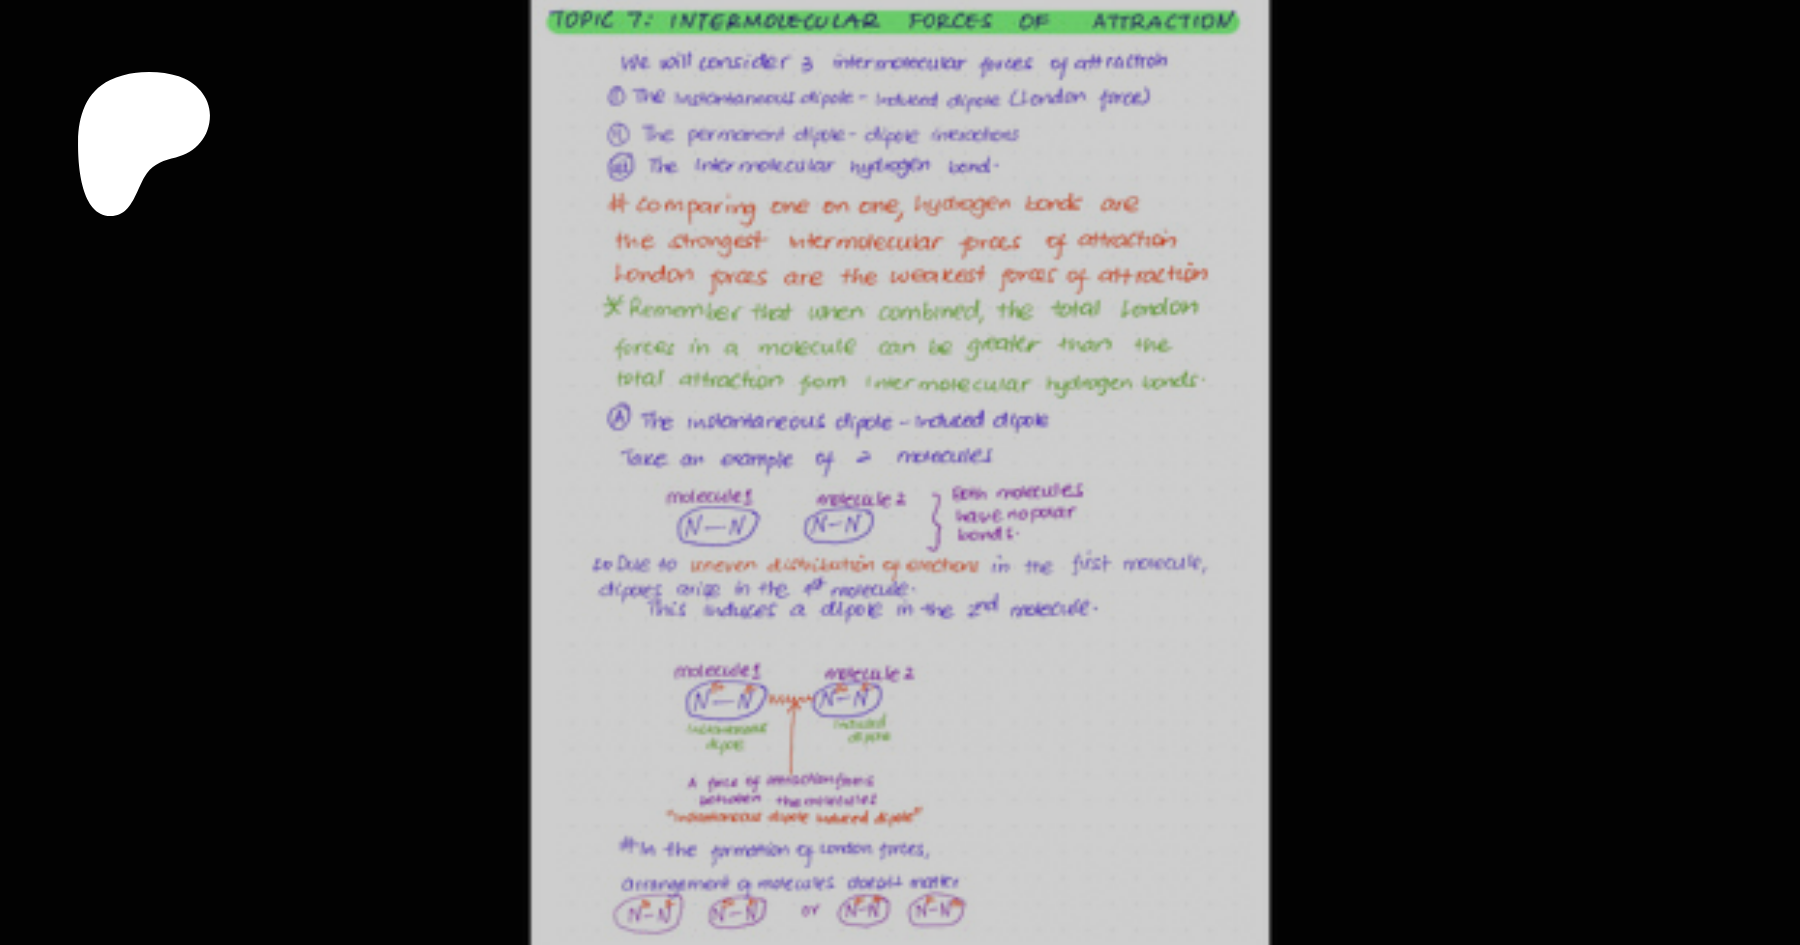 TOPIC 7: INTERMOLECULAR FORCES OF ATTRACTION
We will consider 3 intermolecular forces of attraction
(i) The instantaneous dipole - Induced dipole (London force)
(ii) The permanent dipole - dipole
(iii) The Intermolecular hydrogen bond.
# Comparing one on one, hydrogen bonds are
the strongest intermolecular forces of attraction
London forces are the weakest forces of attraction
* Remember that when combined, the total London
forces in a molecule can be greater than the
total attraction from intermolecular hydrogen bonds.
(A) The instantaneous dipole - induced dipole
Take an example of 2 molecules
molecule 1 molecule 2
N—N N-N
Both molecules
have no polar
bonds.
Due to uneven distribution of electrons in the first molecule,
dipoles arise in the 1st molecule.
This induces a dipole in the 2nd molecule.
molecule 1 molecule 2
N—N N-N
instantaneous dipole
induced dipole
A force of attraction forms
between the molecules
"instantaneous dipole induced dipole"
# In the formation of London forces,
arrangement of molecules doesn't matter
N-N N-N or N-N N-N